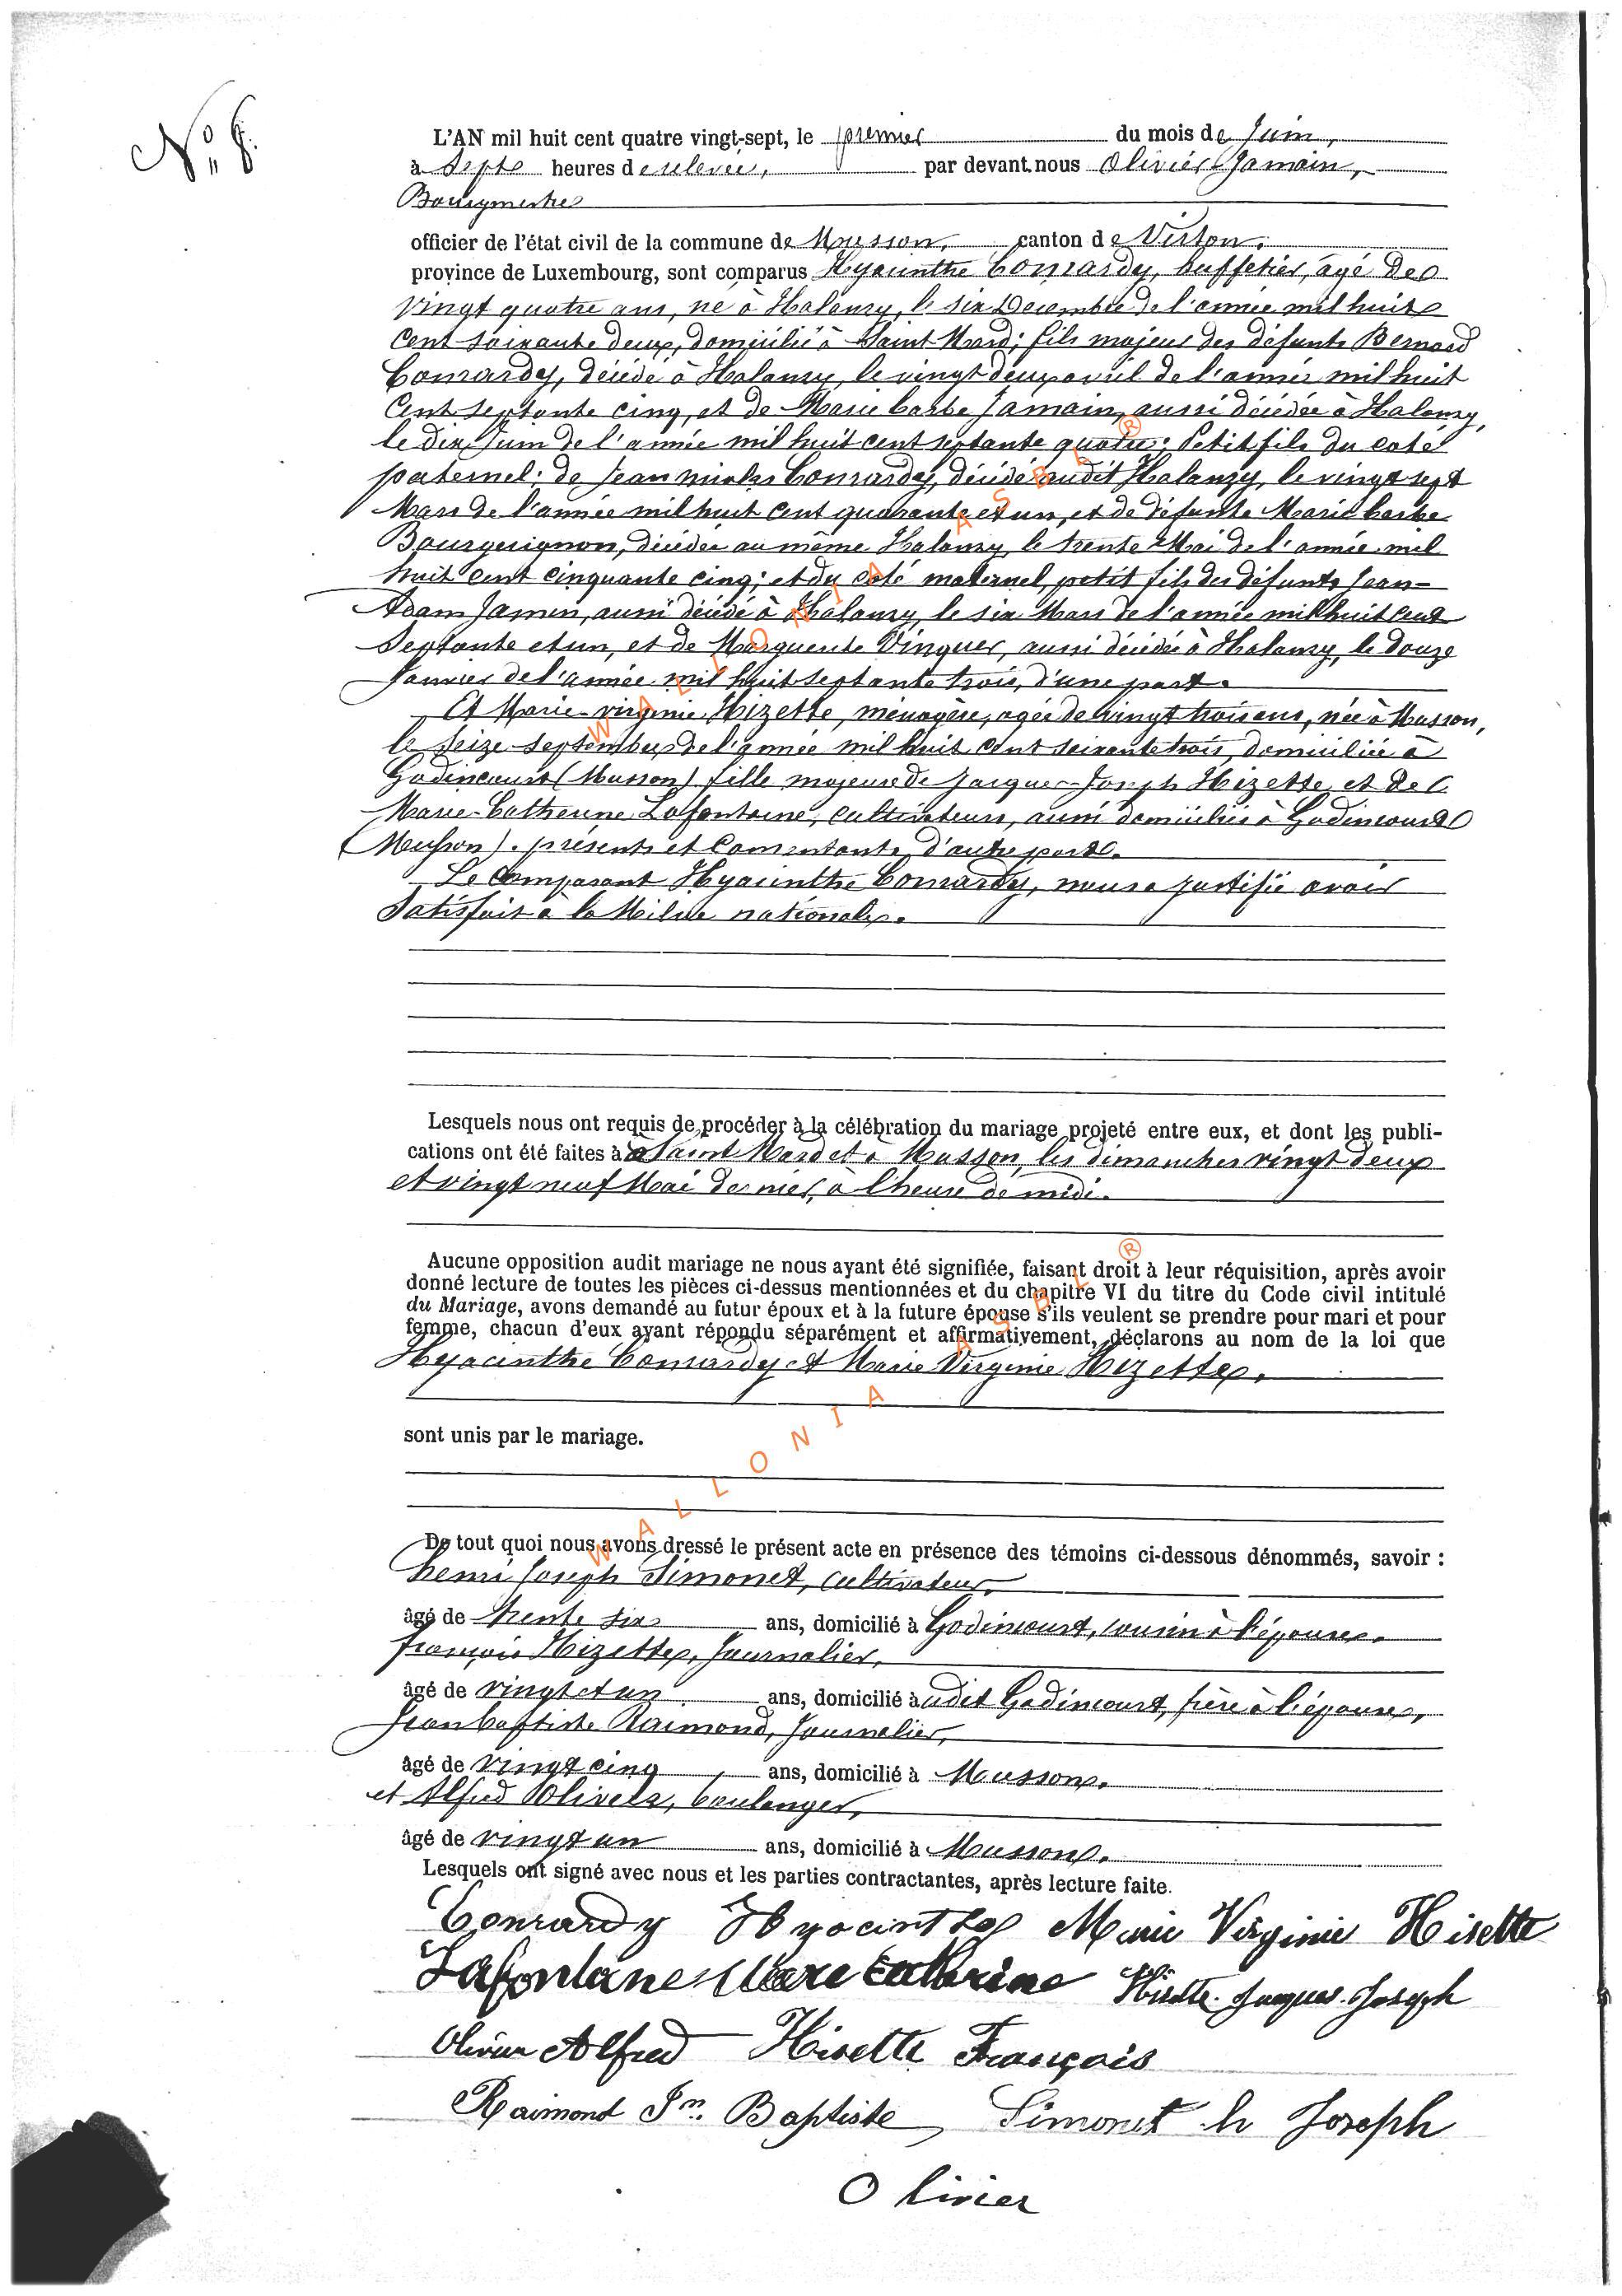 N° 8.
L'AN mil huit cent quatre vingt-sept, le premier du mois de Juin,
à Sept heures de relevée, par devant nous Olivier Jamain,
Bourgmestre
officier de l'état civil de la commune de Musson, canton de Virton,
province de Luxembourg, sont comparus Hyacinthe Conrardy, buffetier, âgé de
vingt quatre ans, né à Halanzy, le six Decembre de l'année mil huit
cent soixante deux, domicilié à Saint Mard; fils majeur des défunts Bernard
Conrardy, décédé à Halanzy, le vingt deux avril de l'année mil huit
cent septante cinq, et de Marie barbe Jamain, aussi décédée à Halanzy,
le dix Juin de l'année mil huit cent septante quatre; Petit fils du coté
paternel; de Jean nicolas Conrardy, décédé audit Halanzy, le vingt sept
Mars de l'année mil huit cent quarante et un, et de défunte Marie barbe
Bourguignon, décédée au même Halanzy, le trente Mai de l'année mil
huit cent cinquante cinq; et du coté maternel, petit fils des défunts Jean-
Adam Jamin, aussi décédé à Halanzy, le six Mars de l'année mil huit cent
Septante et un, et de Marguerite Vinquer, aussi décédée à Halanzy, le douze
Janvier de l'année mil huit septante trois, d'une part.
Et Marie-virginie Hizette, ménagère, agée de vingt trois ans, née à Musson,
le seize septembre de l'année mil huit cent soixante trois, domiciliée à
Godincourt (Musson) fille majeure de Jacques-Joseph Hizette et de
Marie-Catherine Lafontaine, cultivateurs, aussi domiciliés à Godincourt
(Musson). présents et consentants, d'autre part.
Le Comparant Hyacinthe Conrardy, nous a justifié avoir
Satisfait à la Milice nationale.
Lesquels nous ont requis de procéder à la célébration du mariage projeté entre eux, et dont les publi-
cations ont été faites à Saint Mard et à Musson, les dimanches vingt deux
et vingt neuf Mai dernier, à l'heure de midi.
Aucune opposition audit mariage ne nous ayant été signifiée, faisant droit à leur réquisition, après avoir
donné lecture de toutes les pièces ci-dessus mentionnées et du chapitre VI du titre du Code civil intitulé
du Mariage, avons demandé au futur époux et à la future épouse s'ils veulent se prendre pour mari et pour
femme, chacun d'eux ayant répondu séparément et affirmativement, déclarons au nom de la loi que
Hyacinthe Conrardy et Marie Virginie Hizette,
sont unis par le mariage.
De tout quoi nous avons dressé le présent acte en présence des témoins ci-dessous dénommés, savoir :
henri Joseph Simonet, cultivateur,
âgé de trente six ans, domicilié à Godincourt, cousin à l'épouse.
françois Hizette, Journalier,
âgé de vingt et un ans, domicilié à udit Godincourt, frère à l'épouse,
Jean baptiste Raimond, Journalier,
âgé de vingt cinq ans, domicilié à Musson.
et Alfred Olivier, boulanger,
âgé de vingt un ans, domicilié à Musson.
Lesquels ont signé avec nous et les parties contractantes, après lecture faite.
Conrardy Hyacinthe Marie Virginie Hisette
Lafontane Marie Catherine Hisette Jacques Joseph
Olivier Alfred Hisette François
Raimond Jn. Baptiste Simonet h Joseph
Olivier
WALLONIA ASBL ®
WALLONIA ASBL ®